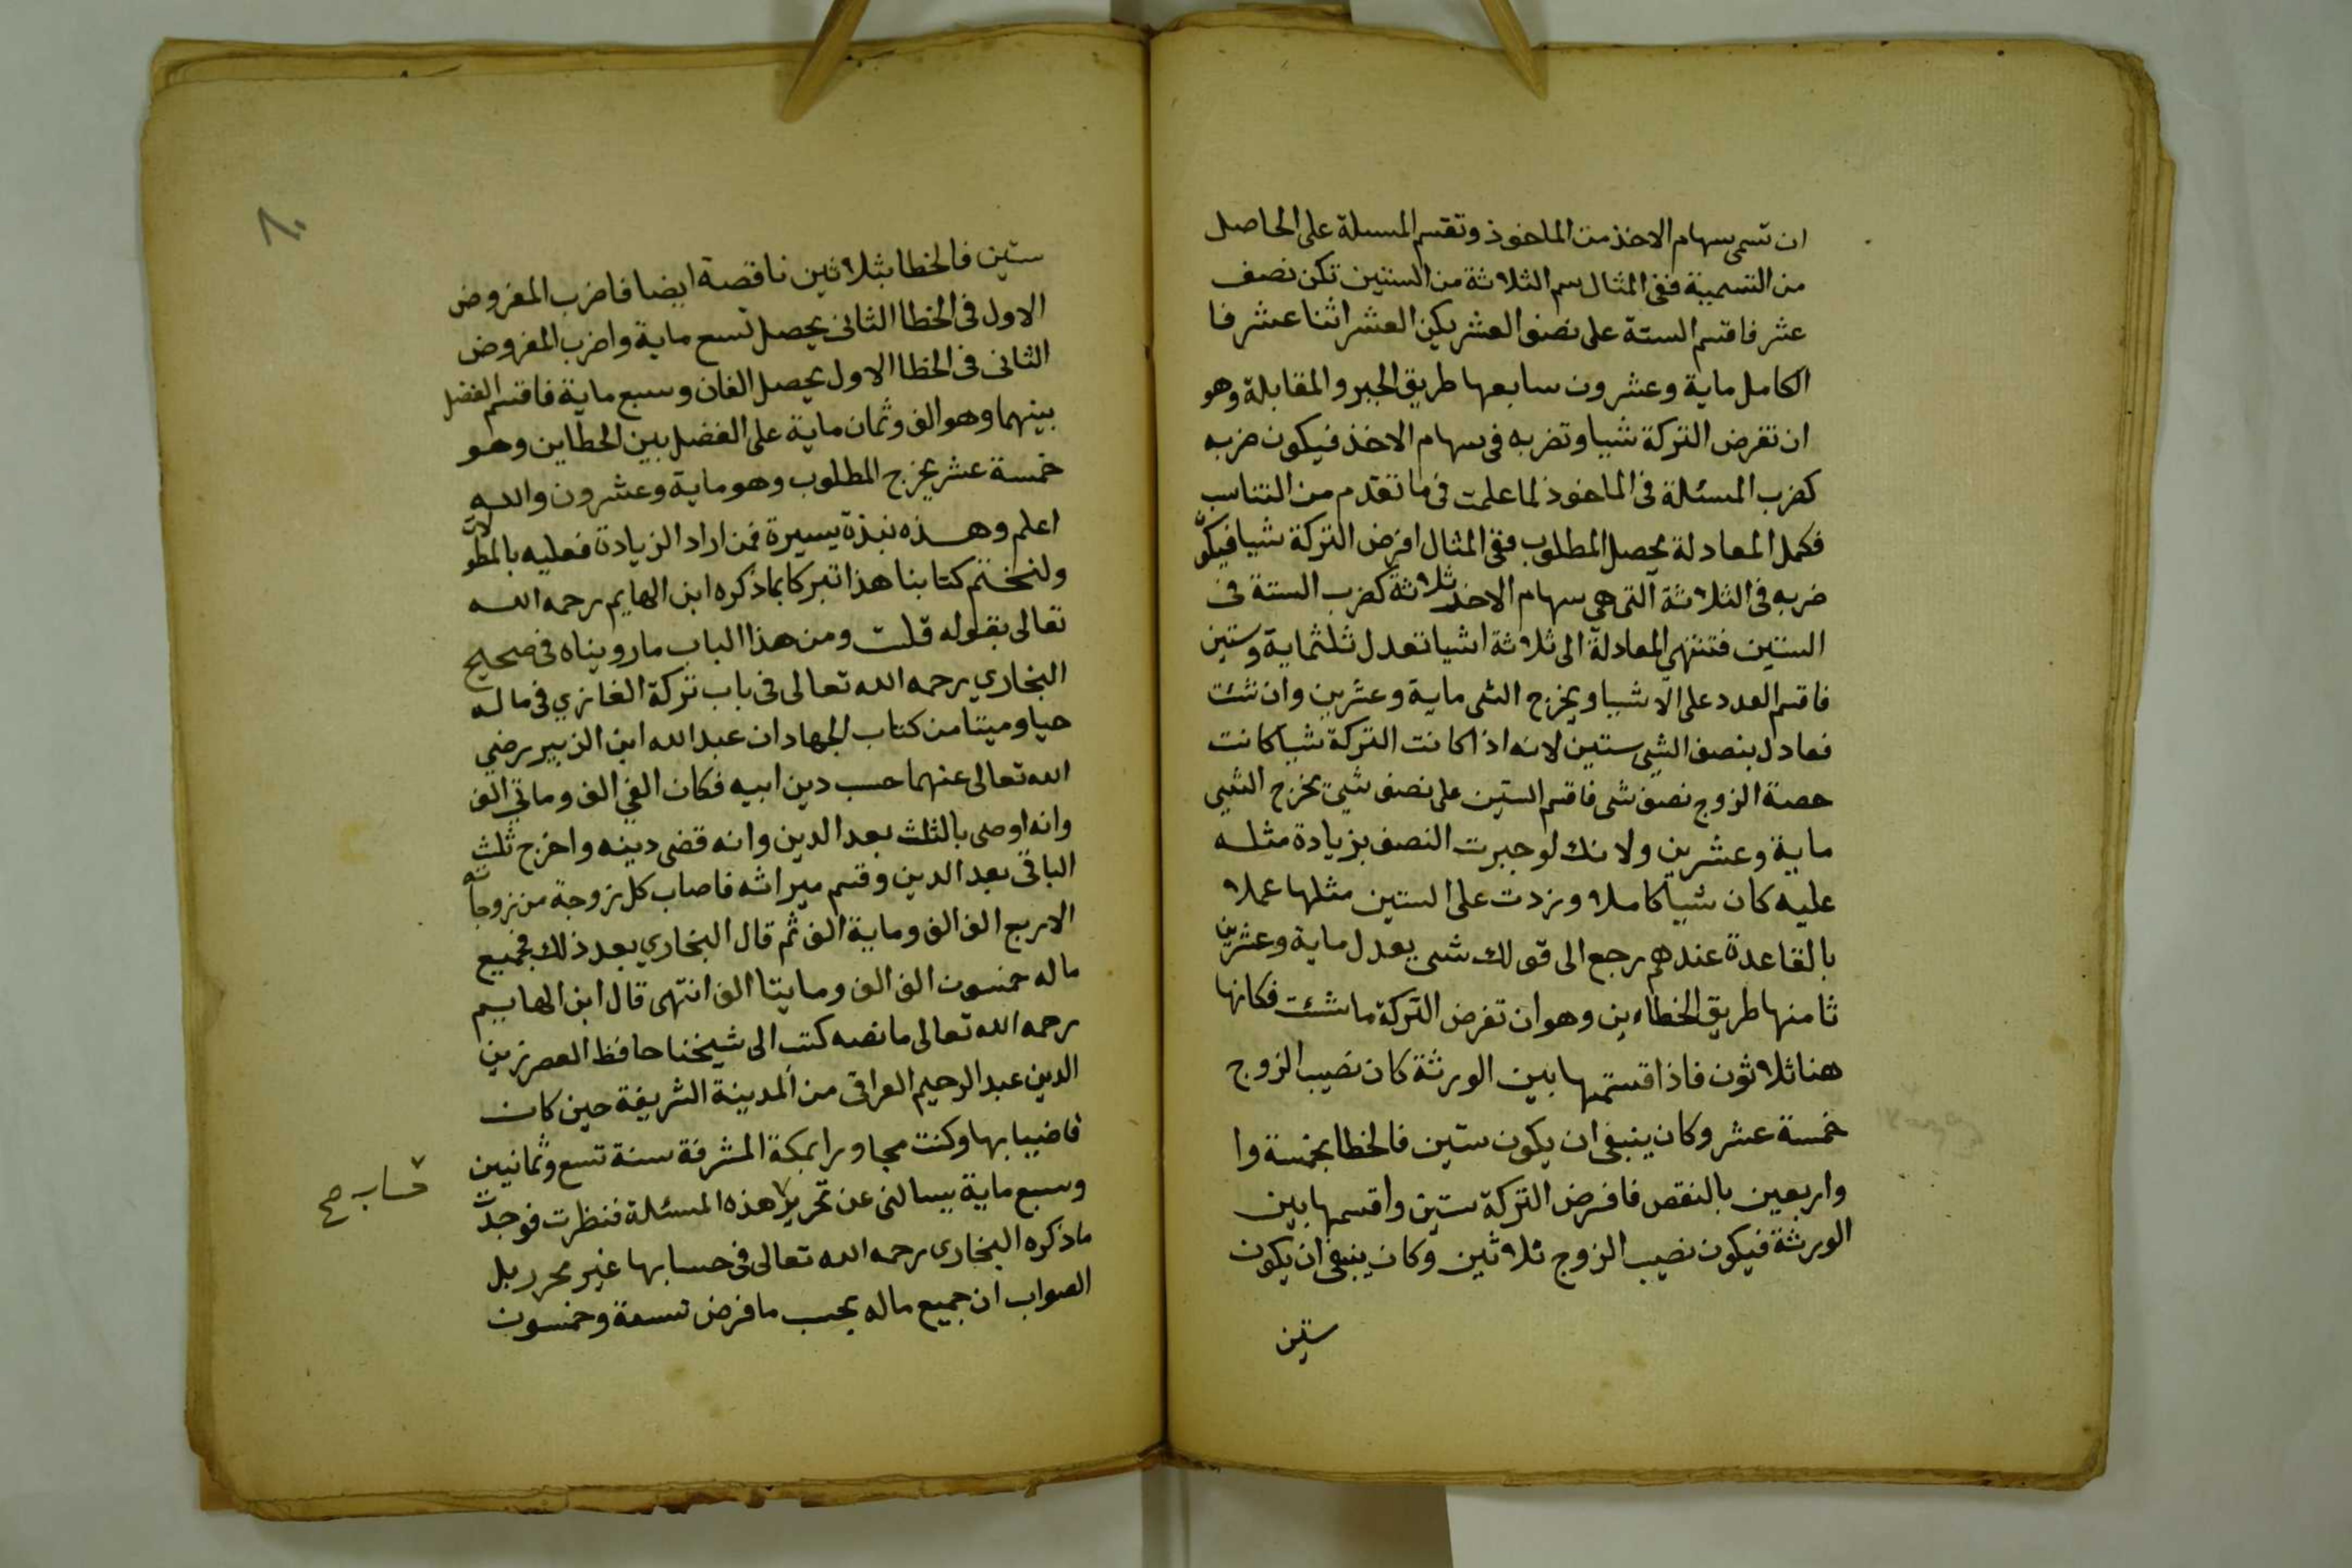 ان تسمى سهام الاخذ من الماخوذ وتقسم المسلة على الحاصل
من التسمية ففى المثال سم الثلاثة من الستين تكن نصف
عشر فاقسم الستة على نصف العشر يكن العشر اثنا عشر فا
الكامل ماية وعشرون سابعها طريق الجبر والمقابلة وهو
ان تفرض التركة شيا وتضربه فى سهام الاخذ فيكون ضربه
كضرب المسئلة فى الماخوذ لما علمت فى ما تقدم من التناسب
فكمل المعادلة يحصل المطلوب ففى المثال افرض التركة شيا فيكون
ضربه فى الثلاثة التى هي سهام الاخذ ثلاثة كضرب الستة فى
الستين فتنتهي المعادلة الى ثلاثة اشيا تعدل ثلثماية وستين
فاقسم العدد على الاشيا ويخرج الشى ماية وعشرين وان شئت
فعادل بنصف الشي ستين لانه اذا كانت التركة شيا كانت
حصة الزوج نصف شى فاقسم الستين على نصف شيئ يخرج الشيى
ماية وعشرين ولانك لو جبرت النصف بزيادة مثله
عليه كان شيا كاملا وزدت على الستين مثلها عملا
بالقاعدة عندهم رجع الى قولك شى يعدل ماية وعشرين
ثامنها طريق الخطاءين وهو ان تفرض التركة ما شئت فكانها
هنا ثلاثون فاذا قسمتها بين الورثة كان نصيب الزوج
خمسة عشر وكان ينبغى ان يكون ستين فالخطا بخمسة وا
واربعين بالنقص فافرض التركة ستين واقسمها بين
الورثة فيكون نصيب الزوج ثلاثين وكان ينبغى ان يكون
ستين
٨٠
ستين فالخطا بثلاثين ناقصة ايضا فاضرب المفروض
الاول فى الخطا الثانى يحصل تسع ماية واضرب المفروض
الثانى فى الخطا الاول يحصل الفان وسبع ماية فاقسم الفضل
بينهما وهو الف وثمان ماية على الفضل بين الخطاين وهو
خمسة عشر يخرج المطلوب وهو ماية وعشرون والله
اعلم وهذه نبذة يسيرة فمن اراد الزيادة فعليه بالمطولات
ولنختم كتابنا هذا تبركا بما ذكره ابن الهايم رحمه الله
تعالى بقوله قلت ومن هذا الباب ما رويناه فى صحيح
البخاري رحمه الله تعالى فى باب تركة الغازي فى ماله
حيا وميتا من كتاب الجهاد ان عبد الله ابن الزبير رضي
الله تعالى عنهما حسب دين ابيه فكان الفي الف وماتي الف
وانه اوصى بالثلث بعد الدين وانه قضى دينه واخرج ثلث
الباقى بعد الدين وقسم ميراثه فاصاب كل زوجة من زوجاته
الاربع الف الف وماية الف ثم قال البخاري بعد ذلك فجميع
ماله خمسون الف الف ومايتا الف انتهى قال ابن الهايم
رحمه الله تعالى ما نصه كتب الى شيخنا حافظ العصر زين
الدين عبد الرحيم العراقى من المدينة الشريفة حين كان
قاضيا بها وكنت مجاورا بمكة المشرفة سنة تسع وثمانين
وسبع ماية يسالنى عن تحرير هذه المسئلة فنظرت فوجدت
ما ذكره البخارى رحمه الله تعالى فى حسابها غير محرر بل
الصواب ان جميع ماله بحسب ما فرض تسعة وخمسون